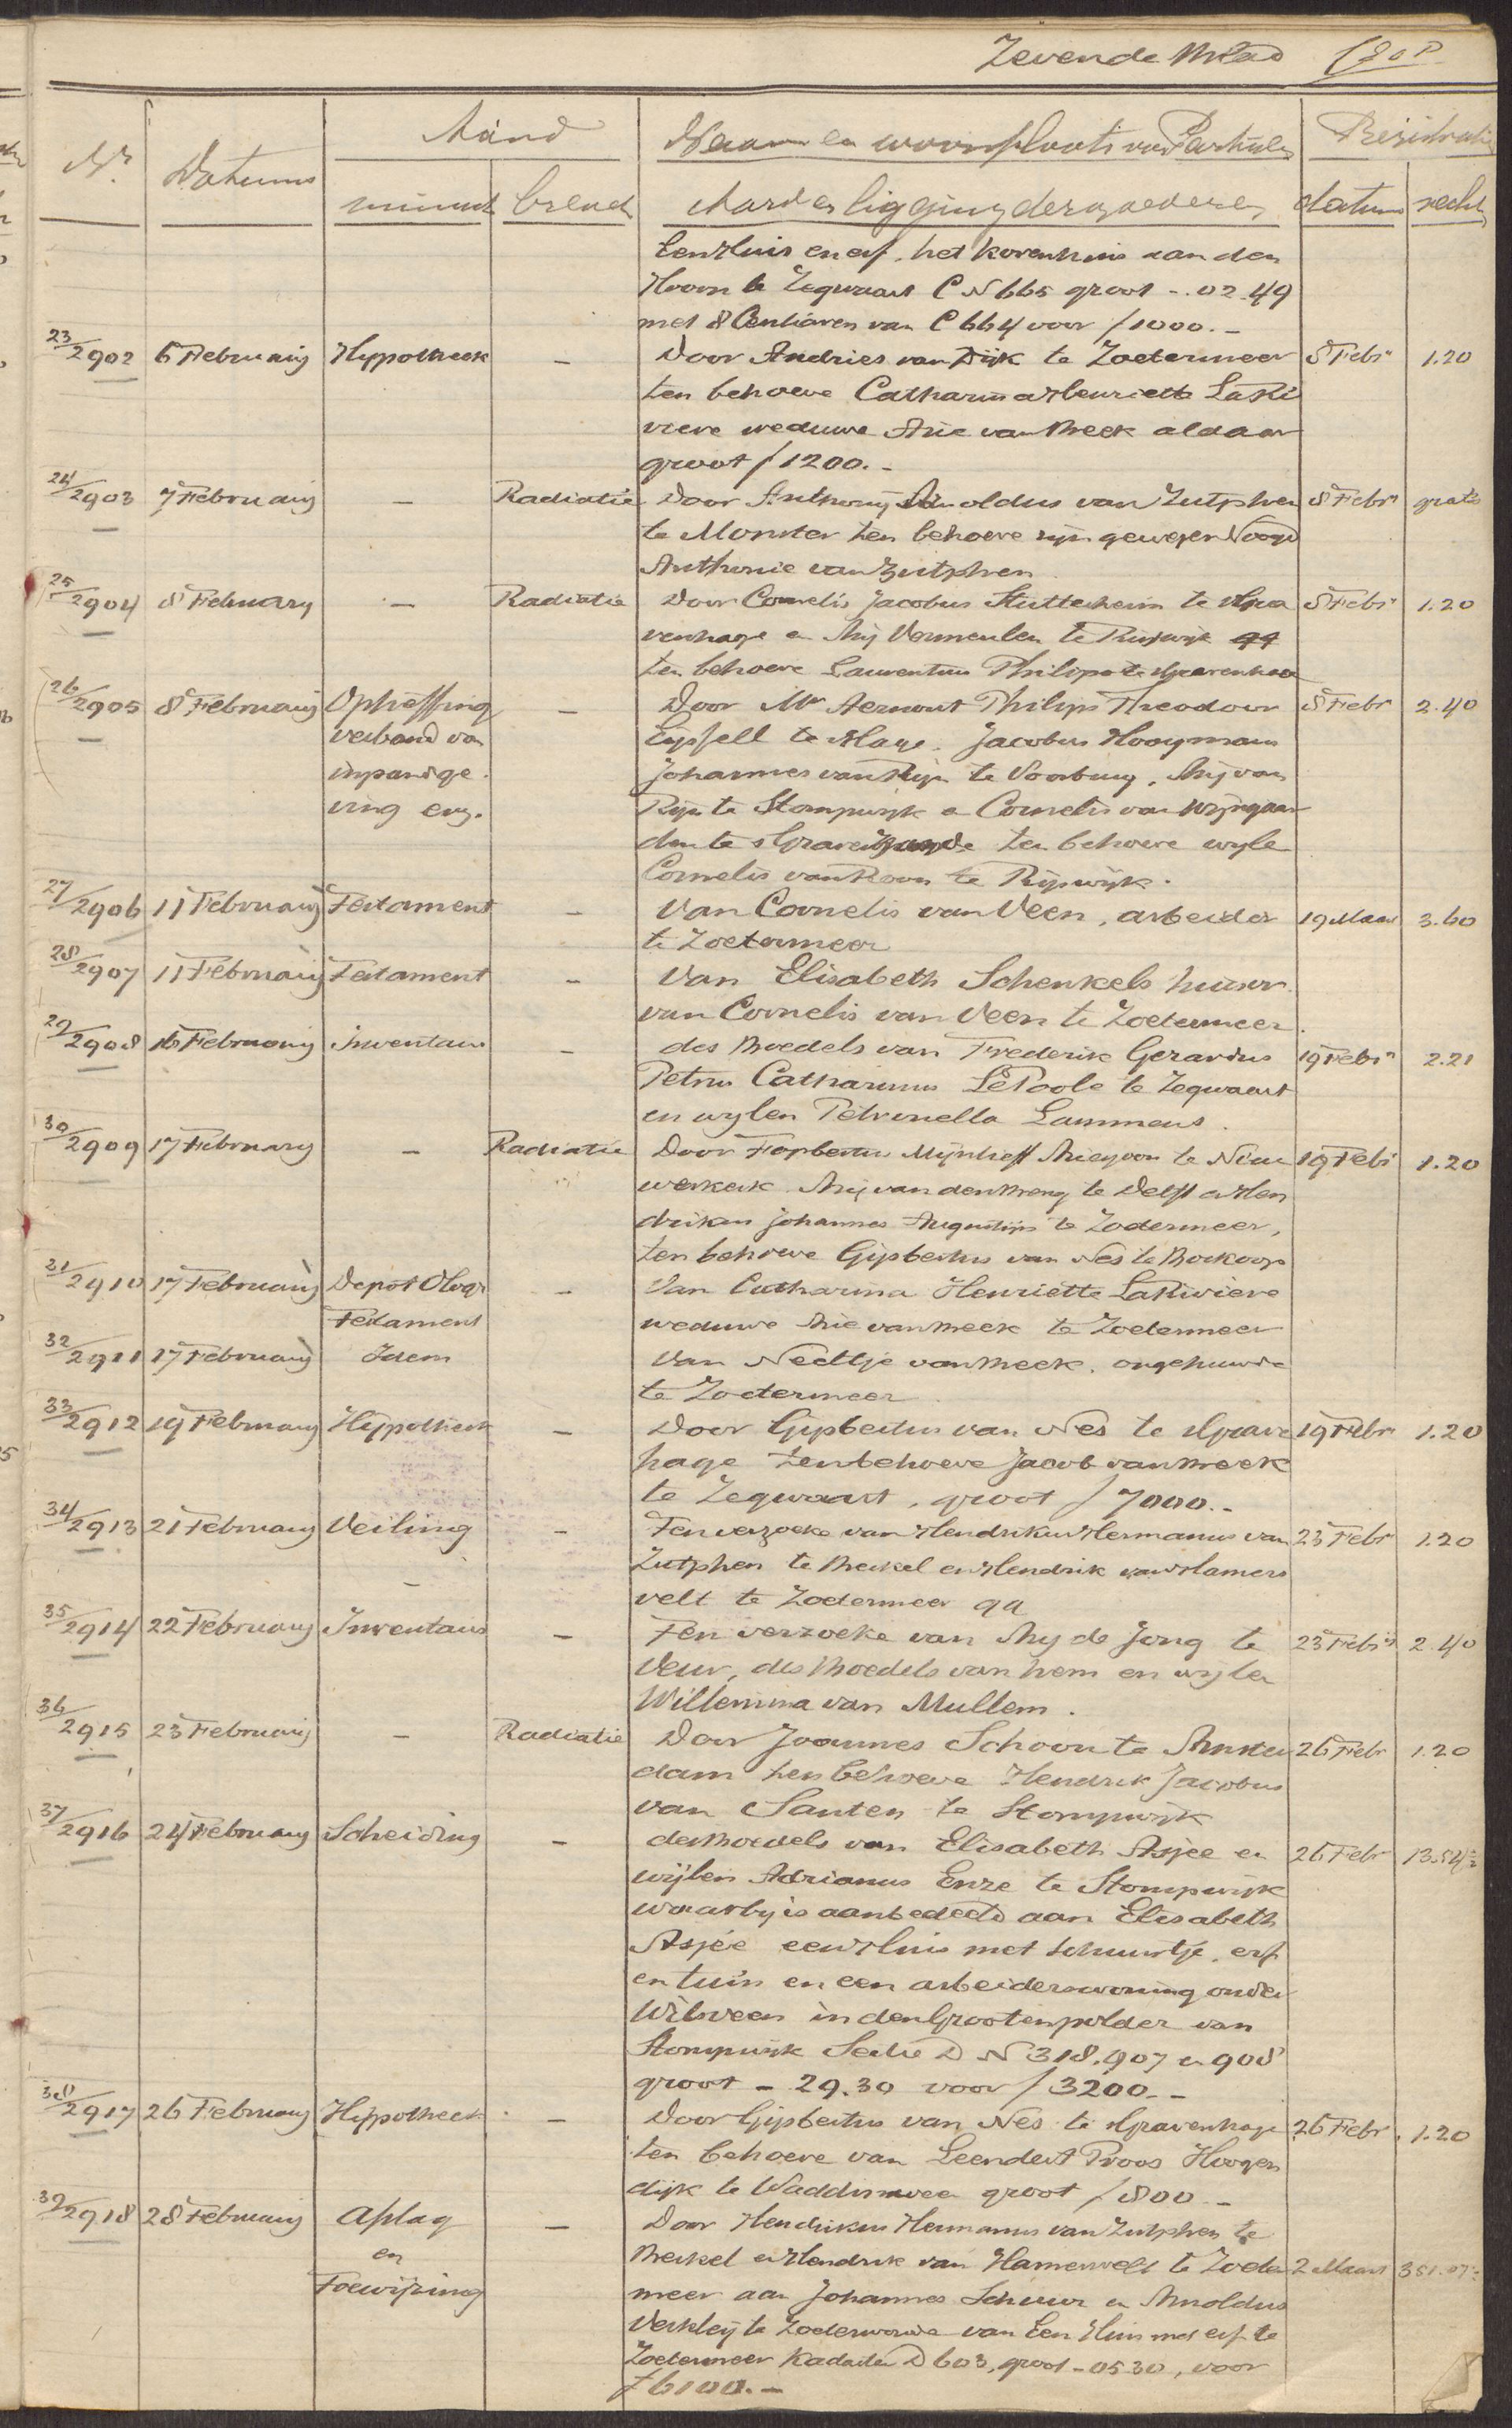 Zevende Blad
Nr. Datums Aard Naam en woonplaats van Partijen Registratie
minuut brevet Aard en ligging der goederen datum recht
Een Huis en erf, het Korenhuis aan den
Hoorn te Zegwaart C N 665 groot -. 02.49
met 8 Centiaren van C 664 voor f 1000.-
23/2902 6 February Hypotheek - Door Andries van Dijk te Zoetermeer 8 Febr 1.20
ten behoeve Catharina Henriette LaRi
viere weduwe Arie van Beek aldaar
groot f 1200.-
24/2903 7 February - Radiatie Door Anthony Arnoldus van Zutphen 8 Febr gratis
te Monster ten behoeve zijn gewezen Voogd
Anthonie van Zutphen
25/2904 8 February - Radiatie Door Cornelis Jacobus Stutterheim te 'sGra 8 Febr 1.20
venhage en Arij Vermeulen te Rijswijk qq
ten behoeve Laurentius Philippo te 'sGravenhage
26/2905 8 February Opheffing - Door Mr Aernout Philip Theodoor 8 Febr 2.40
verband van Eyssell te 'sHage, Jacobus Hooymans
inpandge Johannes van Rijn te Voorburg, Arij van
ving enz. Rijn te Stompwijk en Cornelis van Wijngaar
den te 's Gravenzande ten behoeve wyle
Cornelis van Roon te Rijswijk.
27/2906 11 February Testament - Van Cornelis van Veen, arbeider 19 Maart 3.60
te Zoetermeer
28/2907 11 February Testament - Van Elisabeth Schenkels huisvr
van Cornelis van Veen te Zoetermeer.
29/2908 16 February Inventaris - des Boedels van Frederik Gerardus 19 Febr 2.21
Petrus Catharinus LePoole te Zegwaart
en wylen Petronella Lammens.
30/2909 17 February - Radiatie Door Mijnlieff Ariezoon te Nieu 19 Febr 1.20
werkerk. Arij van den Breng te Delft en Hen
drikus Johannes Augustijn te Zoetermeer,
ten behoeve Gijsbertus van Nes te Boskoop
31/2910 17 February Depot Olog: - Van Catharina Henriette LaRiviere
Testament weduwe Arie van Beek te Zoetermeer
32/2911 17 February Idem Van Neeltje van Beek, ongehuwde
te Zoetermeer
33/2912 19 February Hypotheek - Door Gijsbertus van Nes te 'sGraven 19 Febr 1.20
hage ten behoeve Jacob van Beek
te Zegwaart, groot f 7000.-
34/2913 21 February Veiling - Ten verzoeke van Hendrikus Hermanus van 23 Febr 1.20
Zutphen te Berkel en Hendrik van Hamers
velt te Zoetermeer qq
35/2914 22 February Inventaris - Ten verzoeke van Arij de Jong te 23 Febr 2.40
Veur, des Boedels van hem en wijlen
Willemina van Mullem.
36/2915 23 February - Radiatie Door Joannes Schoon te Amster 26 Febr 1.20
dam ten behoeve Hendrik Jacobus
van Santen te Stompwijk
37/2916 24 February Scheiding - des Boedels van Elisabeth Asjee en 26 Febr 13.54½
wijlen Adrianus Enze te Stompwijk
waarbij is aanbedeeld aan Elisabeth
Asjee een Huis met schuurtje, erf
en tuin en een arbeiderswoning onder
Wilsveen in den Grootenpolder van
Stompwijk Sectie D N 318, 907 en 908
groot - 29.30 voor f 3200.-
38/2917 26 February Hypotheek - Door Gijsbertus van Nes te 'sGravenhage 26 Febr. 1.20
ten behoeve van Leendert Proos Hoogen
dijk te Waddinxveen groot f 800.-
39/2918 28 February Afslag - Door Hendrikus Hermanus van Zutphen te
en Berkel en Hendrik van Hamersvelt te Zoeter 2 Maart
Toewijzing meer aan Johannes Scheuer en Arnoldus
Verkleij te Zoeterwoude van Een Huis met erf te
Zoetermeer Kadaster D 603, groot - 05 30, voor
f 6100.-